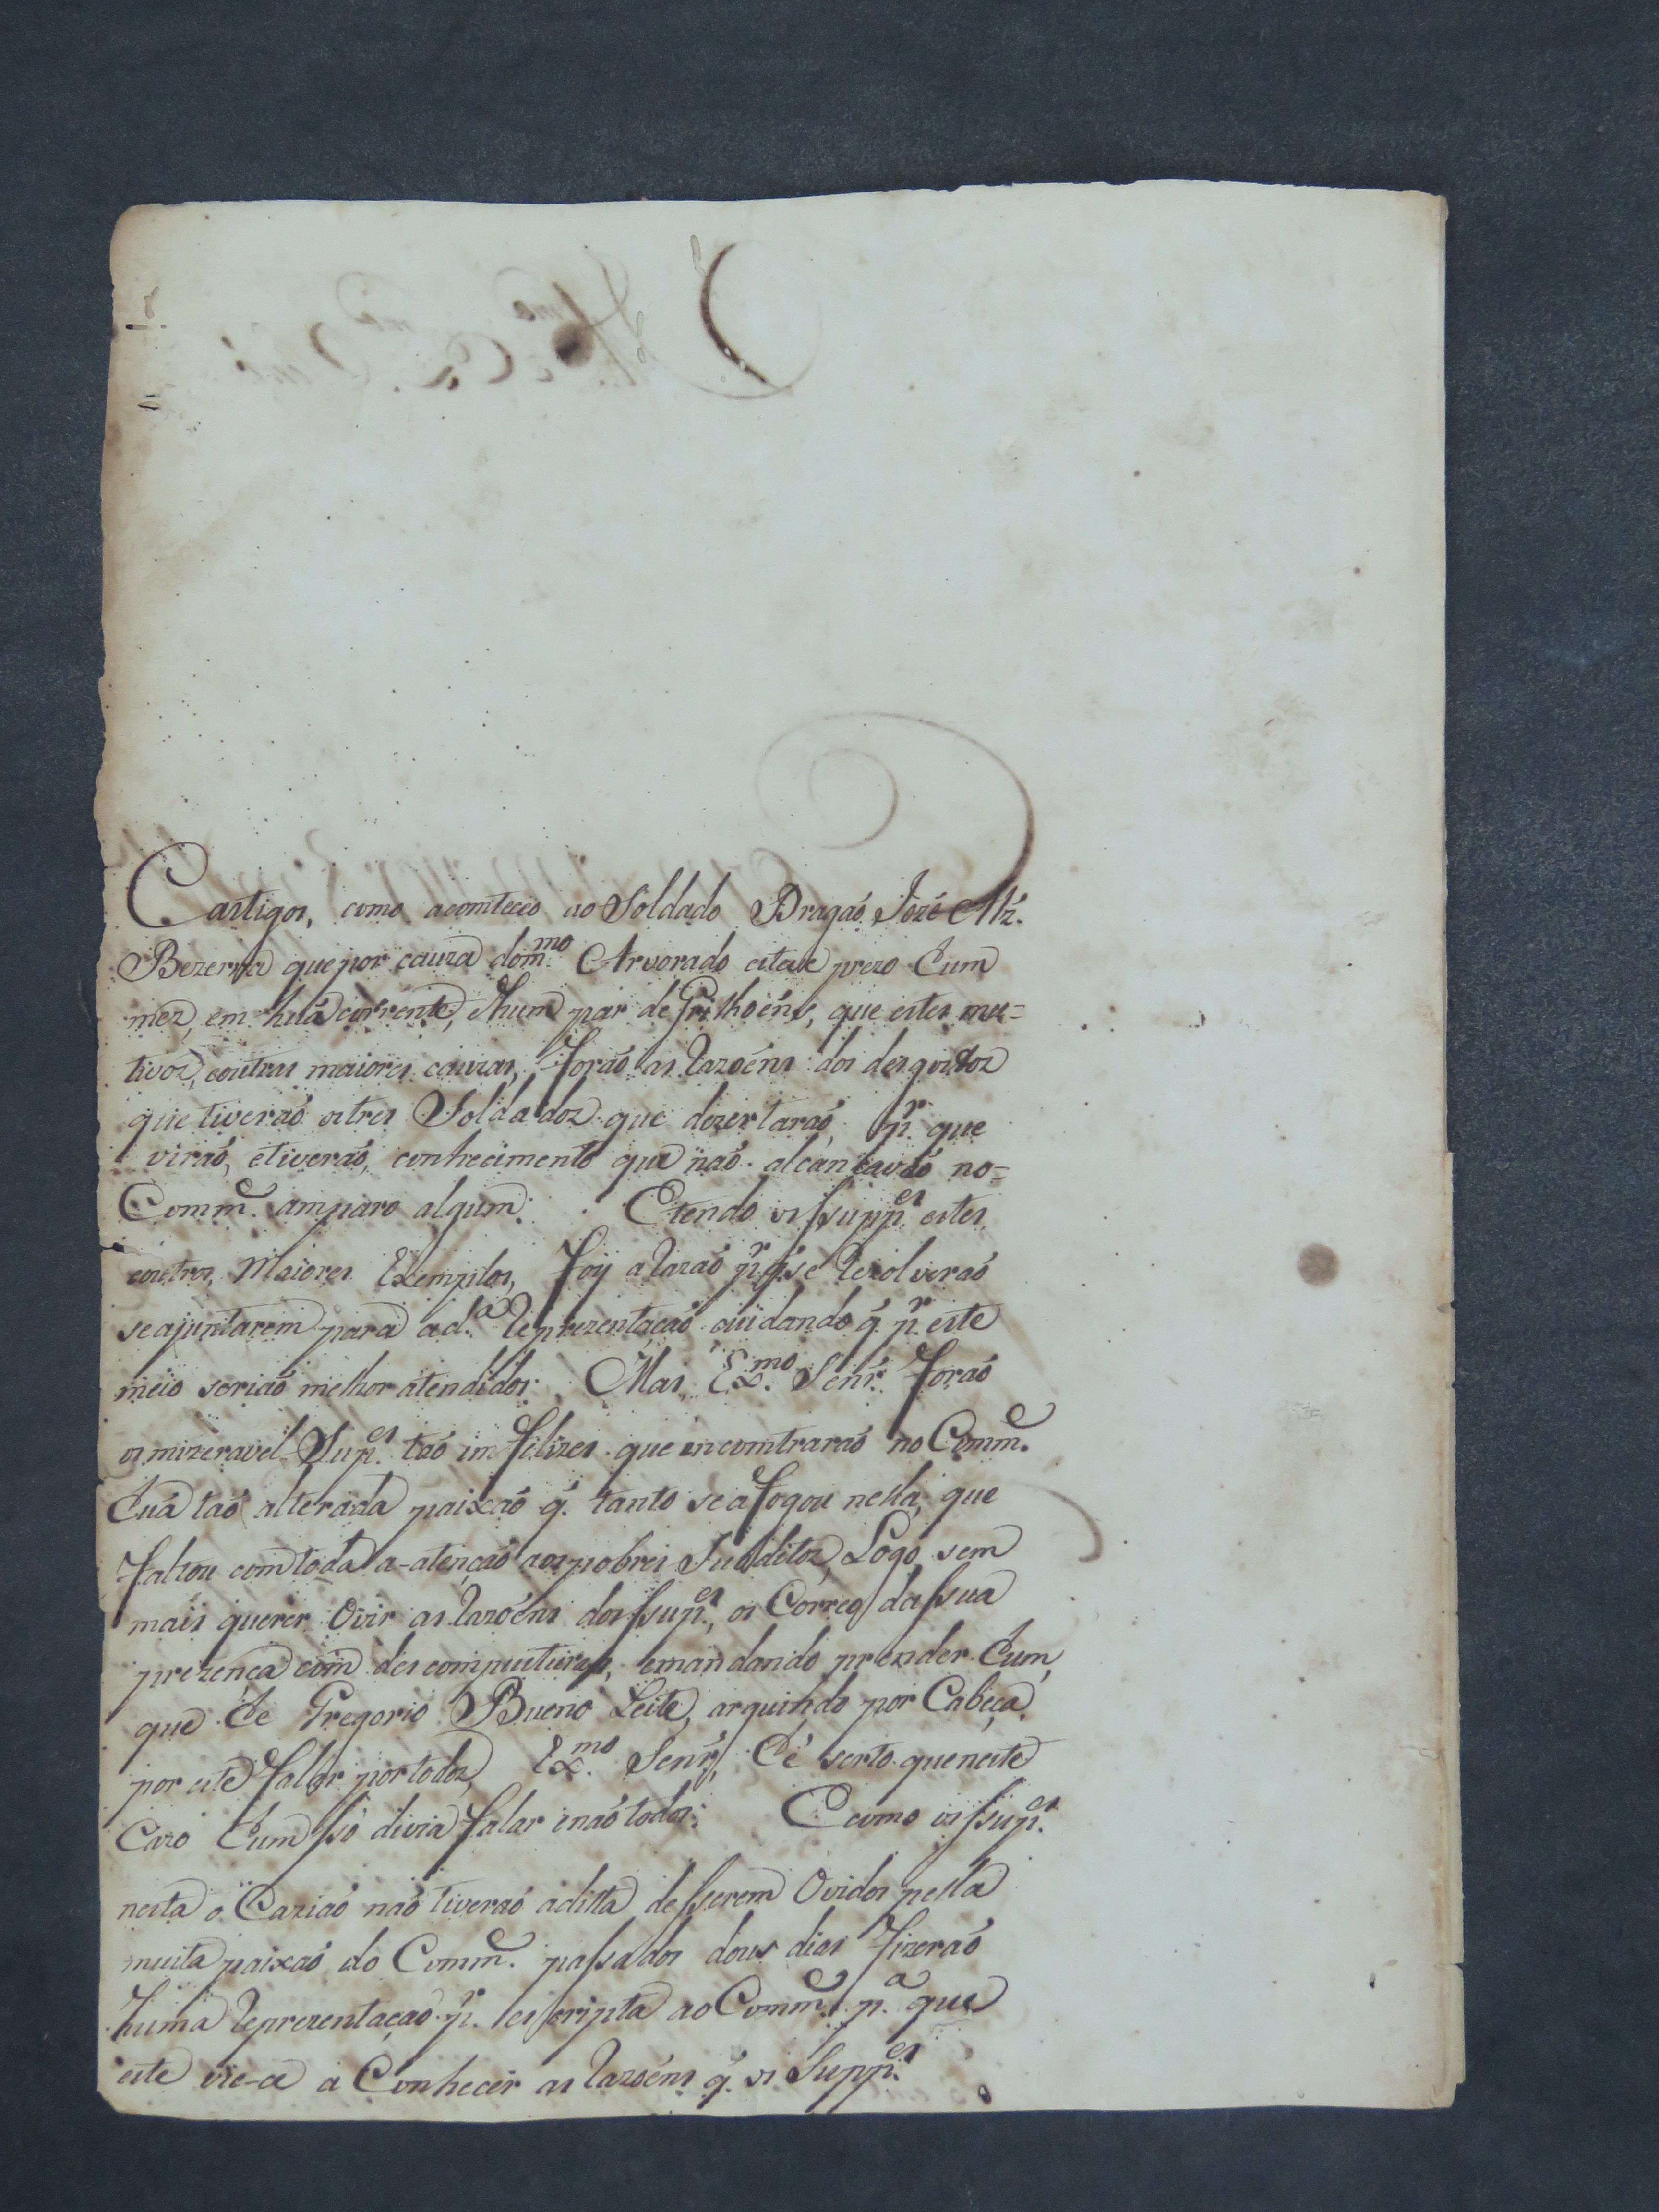 Castigos, como aconteceo ao Soldado Dragaõ Jozé Alz.
Bezerra que por cauza dom.mo Arvorado esteve prezo hum
mez, em huã corrente, e hum par de Grilhoéns, que estes mu=
tivoz, eoutras maiores cauzas, foraõ as razoéns dos desgostoz
que tiveraõ os tres Soldadoz que dezertaraõ, p.r que
viraõ, etiveraõ, conhecimento que naõ alcansavaõ no=
Comm.e amparo algum. E tendo os supp.es estes
eoutros Maiores Exemplos, foy a razaõ p.r q́. se rezolveraõ
se ajuntarem para a d.a reprezentaçaõ cuidando q́. p.r este
meio seriaõ melhor atendidos. Mas, Ex.mo Senr. foraõ
os mizeravel Sup.es taõ in felizes que encomtraraõ no Comm.e
huã taõ alterada paixaõ q́. tanto se afogou nella, que
faltou com toda a-atençaõ aos pobres Subditoz, Logo sem
mais querer Ovir as razoéns dos sup.es, os Correo da sua
prezença com descomposturas, emandando prender hum,
que he Gregorio Bueno Leite, arguindo por Cabeça,
por este falar por todoz, Ex.mo Senr, hé serto que neste
Cazo hum só divia falar enaõ todos. E como os sup.es
nesta o Caziaõ naõ tiveraõ aditta de serem Ovidos pella
muita paixaõ do Comm.e passados dous dias fizeraõ
huma reprezentaçaõ p.r escripta ao Comm.e p.a que
este vie-ce a Conhecer as razoéns q́. os Supp.es